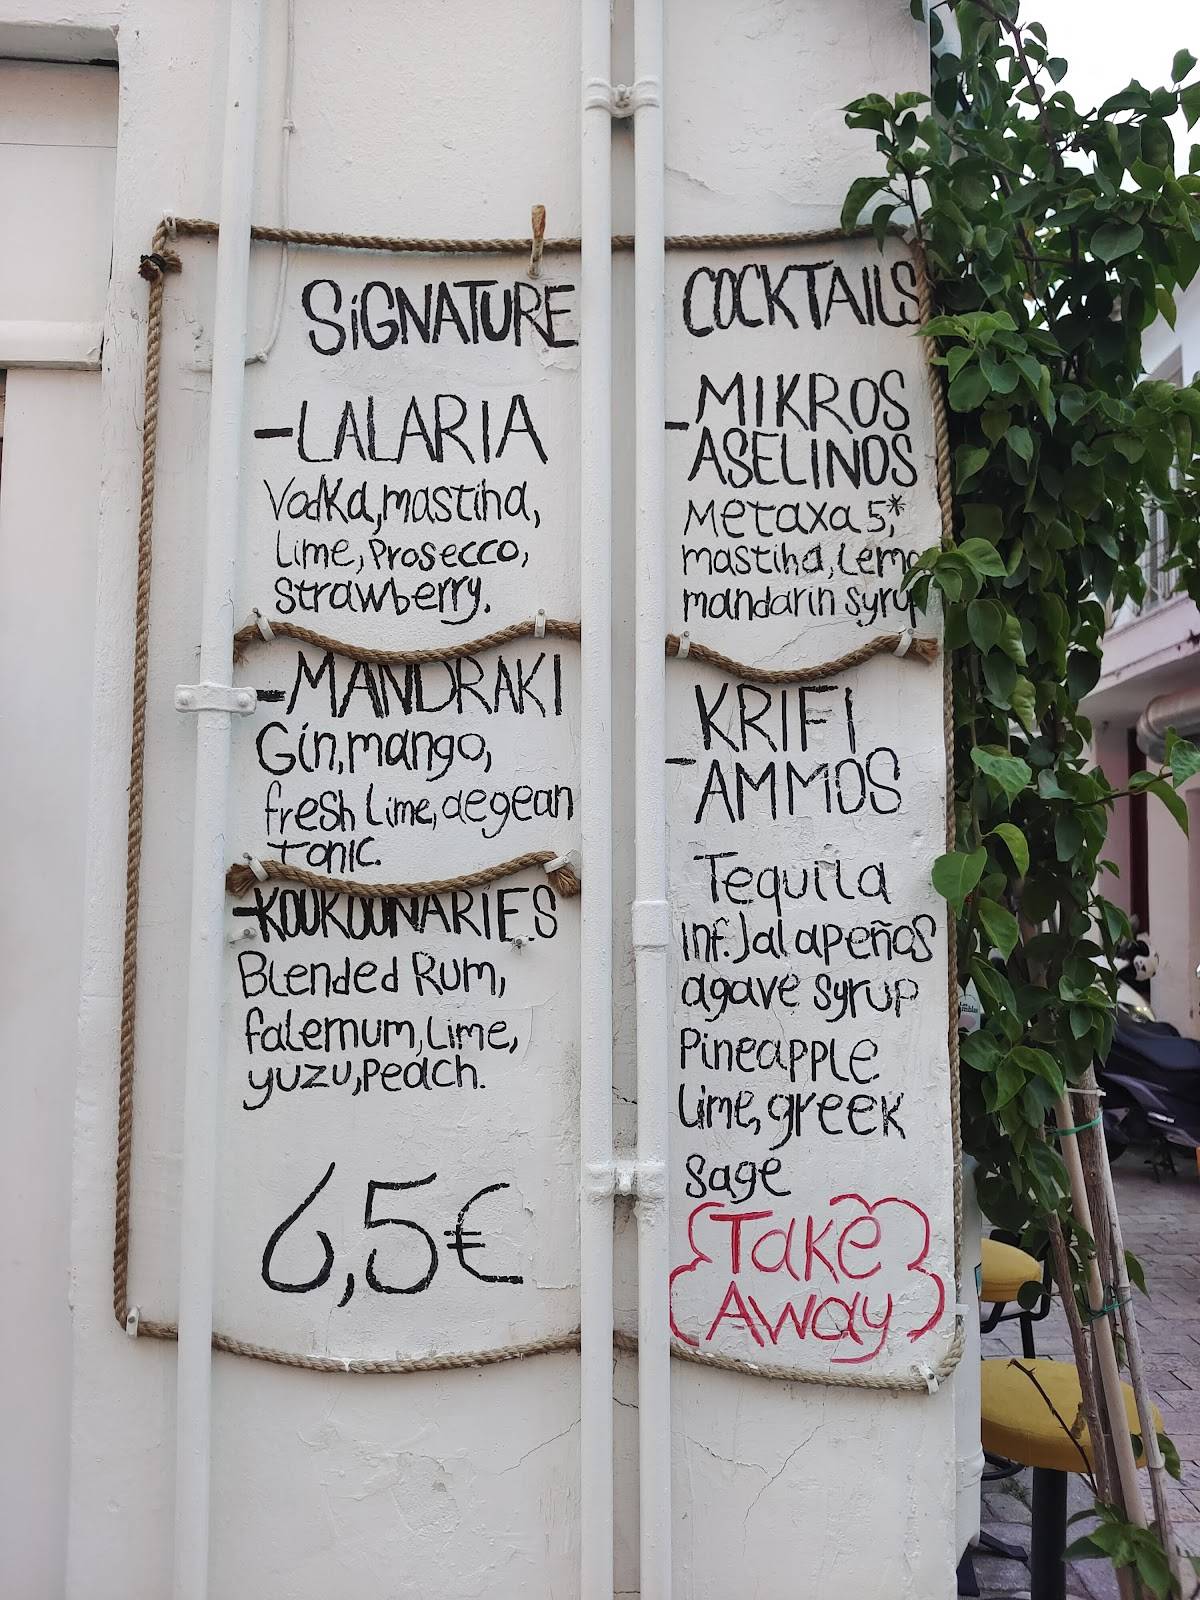 SiGNATURE COCKTAILS
-LALARIA
Vodka, mastiha,
Lime, Prosecco,
Strawberry.
-MANDRAKI
Gin, mango,
fresh Lime, aegean
Tonic.
-KOUKOUNARIES
Blended Rum,
falernum, Lime,
yuzu, Peach.
6,5€
-MIKROS
ASELINOS
Metaxa 5,*
mastiha,
mandarin
-KRIFI
AMMOS
Tequila
inf. Jalapeños
agave syrup
Pineapple
Lime, greek
sage
Take
Away